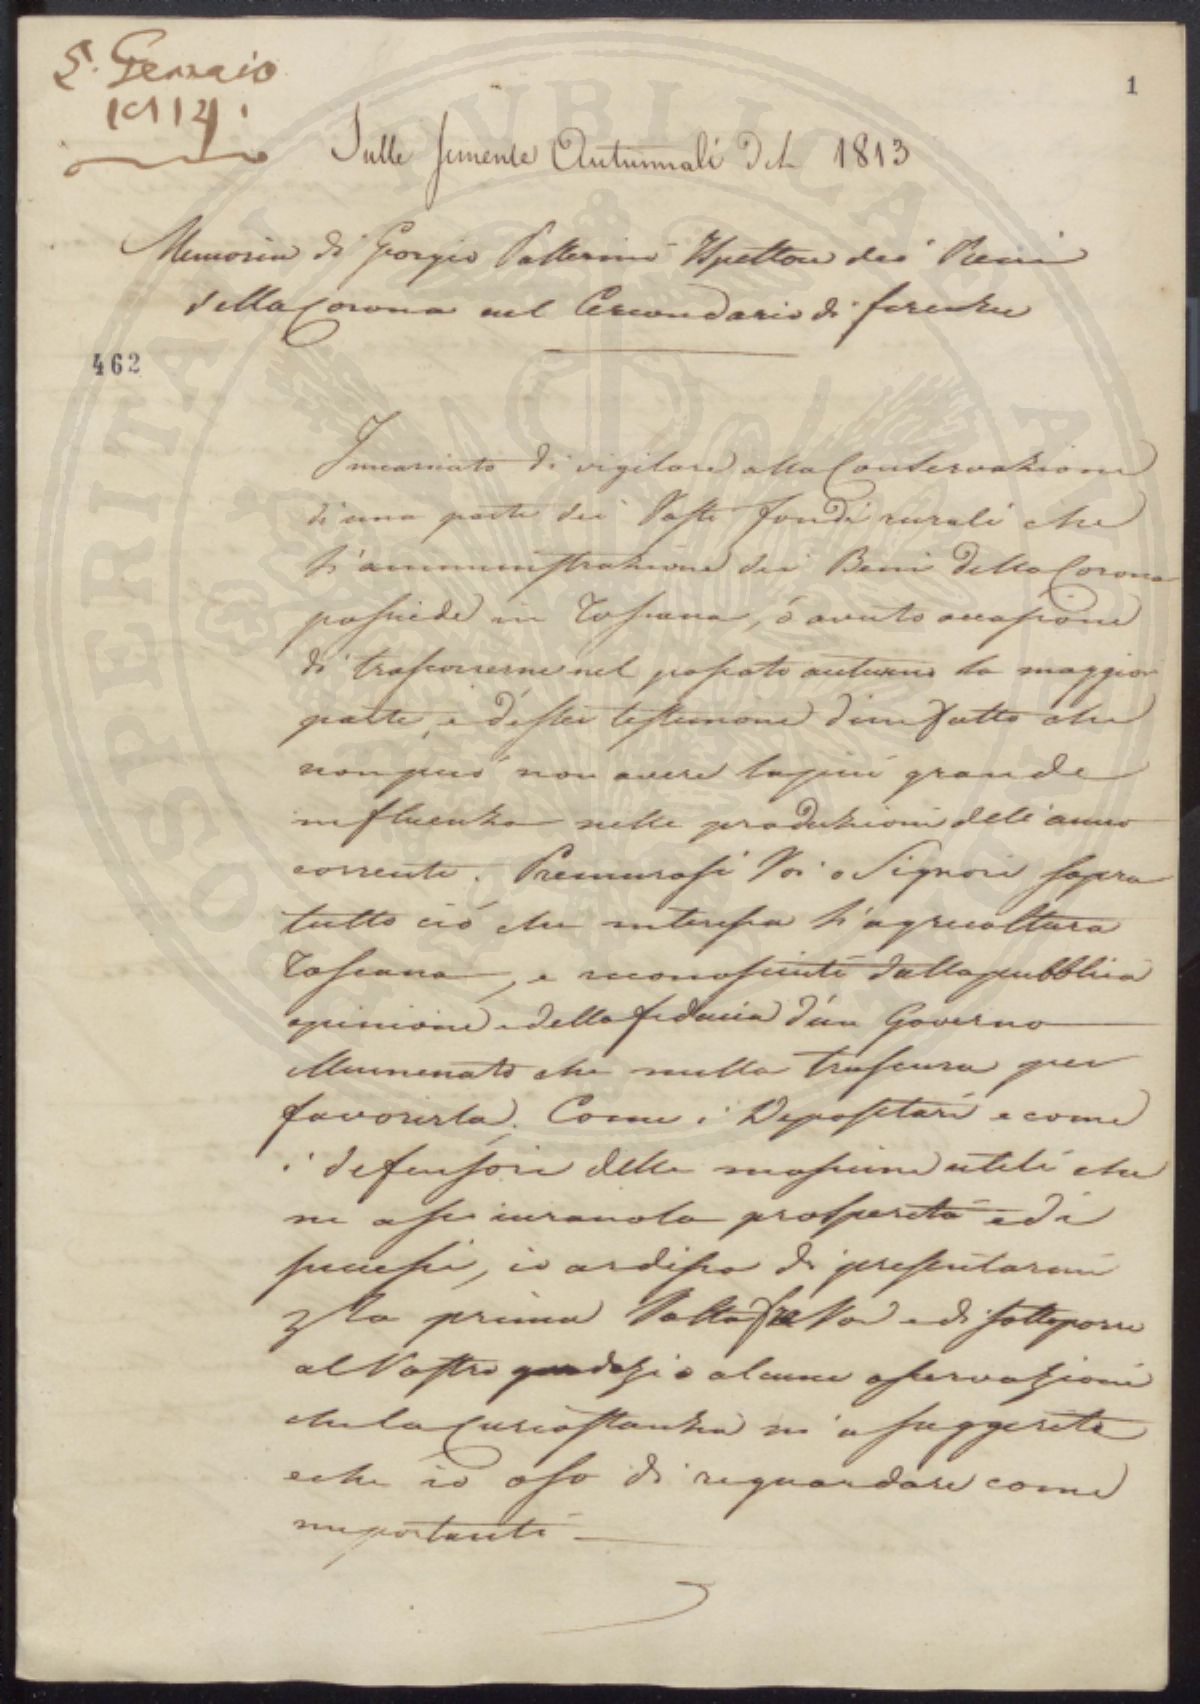 5. Gennaio
1814.
1
Sulle semente Autunnali del 1813
Memoria di Giorgio Ispettore dei Beni
della Corona nel Circondario di Firenze
462
Incaricato di vigilare alla Conservazione
di una parte dei Vasti fondi rurali che
l'amministrazione dei Beni della Corona
possiede in Toscana, ò avuto occasione
di trascorrerne nel passato autunno la maggior
parte, e d'esser testimone d'un fatto che
non può non avere la più grande
influenza nelle produzioni dell'anno
corrente. Premurosi Voi o Signori sopra
tutto ciò che interessa l'agricoltura
Toscana, e riconosciuti dalla pubblica
opinione e della fiducia d'un Governo
illuminato che nulla trascura per
favorirla. Come i Depositari e come
i difensori delle massime utili che
ne assicurano la prosperità ed i
successi, io ardisco di presentarmi
la prima Volta fra Voi e di sottoporre
al Vostro giudizio alcune osservazioni
che la Circostanza m'a suggerite
e che io oso di riguardare come
importanti
PROSPERITATI PVBLICAE AVGENDAE